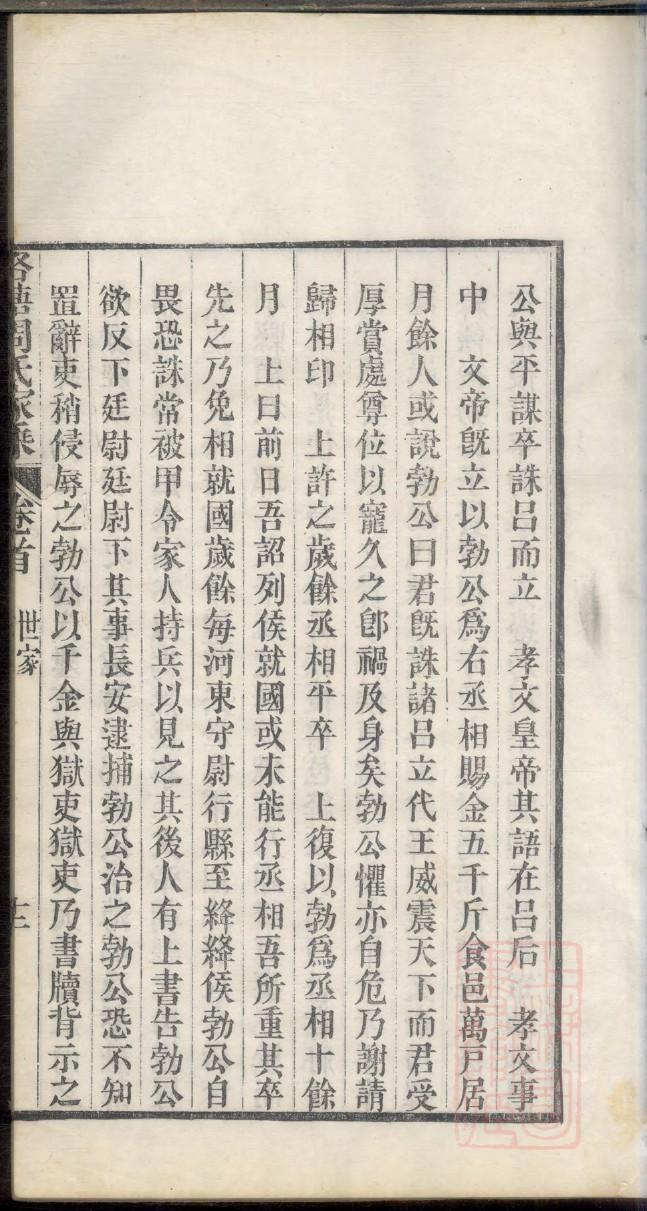 公與平謀卒誅呂而立　孝文皇帝其語在呂后　孝文事
中　文帝旣立以勃公爲右丞相賜金五千斤食邑萬戶居
月餘人或說勃公曰君旣誅諸呂立代王威震天下而君受
厚賞處尊位以寵久之卽禍及身矣勃公懼亦自危乃謝請
歸相印　上許之歲餘丞相平卒　上復以勃爲丞相十餘
月　上曰前日吾詔列侯就國或未能行丞相吾所重其卒
先之乃免相就國歲餘每河東守尉行縣至絳絳侯勃公自
畏恐誅常被甲令家人持兵以見之其後人有上書告勃公
欲反下廷尉廷尉下其事長安逮捕勃公治之勃公恐不知
置辭吏稍侵辱之勃公以千金與獄吏獄吏乃書牘背示之
周氏家乘　卷首　世家